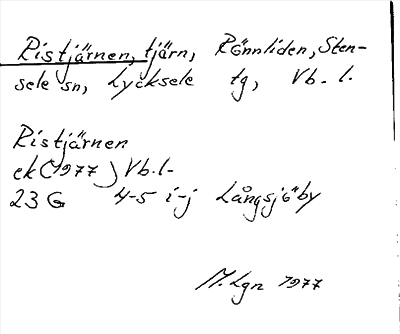 Ristjärnen, tjärn, Rönnliden, Sten-
sele sn, Lycksele tg, Vb. l.
Ristjärnen
ek (1977) Vb.l-
23 G 4-5 i-j Långsjöby
M. Lgn 1977